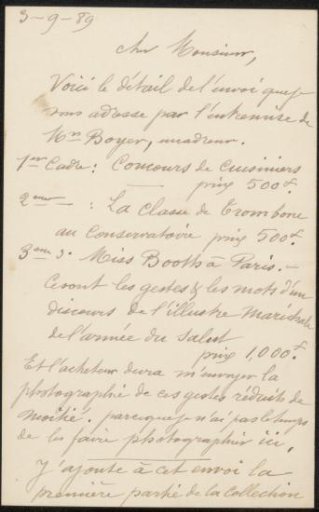 3-9-89
cher Monsieur,
Voici le détail de l'envoi que je
vous adresse par l'entremise de
Mr Boyer, encadreur.
1er Cadre: Concours de Cuisiniers
prix 500f.
2eme — : La Classe de Trombone
au Conservatoire prix 500f.
3eme d°. Miss Booth à Paris. —
Ceront les gestes & les mots d'un
discours de l'illustre Maréchale
de l'armée du Salut
prix 1,000f.
Et l'acheteur devra m'envoyer la
photographie de ces gestes réduits de
moitié. parceque je n'ai pas le temps
de les faire photographier ici.
J'ajoute à cet envoi la
première partie de la Collection